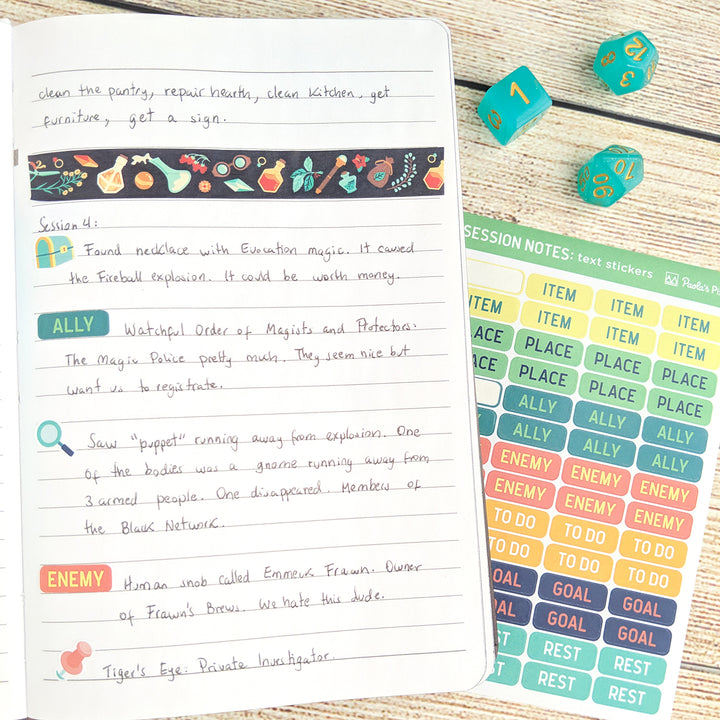 clean the pantry, repair hearth, clean kitchen, get
furniture, get a sign.
Session 4:
Found necklace with Evocation magic. It caused
the Fireball explosion. It could be worth money.
ALLY Watchful Order of Magists and Protectors:
The Magic Police pretty much. They seem nice but
want us to registrate.
Saw "puppet" running away from explosion. One
of the bodies was a gnome running away from
3 armed people. One disappeared. Members of
the Black Network.
ENEMY Human snob called Emmeck Frawn. Owner
of Frawn's Brews. We hate this dude.
Tiger's Eye: Private Investigator.
12
3
1
8
10
90
SESSION NOTES: text stickers Paola's
ITEM ITEM ITEM
ITEM ITEM ITEM ITEM
PLACE PLACE PLACE
PLACE PLACE PLACE
ALLY ALLY ALLY
ALLY ALLY ALLY
ENEMY ENEMY ENEMY
ENEMY ENEMY ENEMY
TO DO TO DO TO DO
TO DO TO DO
GOAL GOAL GOAL
GOAL GOAL GOAL
REST REST REST
REST REST REST